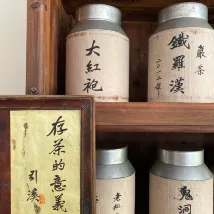 大紅袍
鐵羅漢
巖茶
二〇一二年
存茶的意義
引溪
老
鬼洞